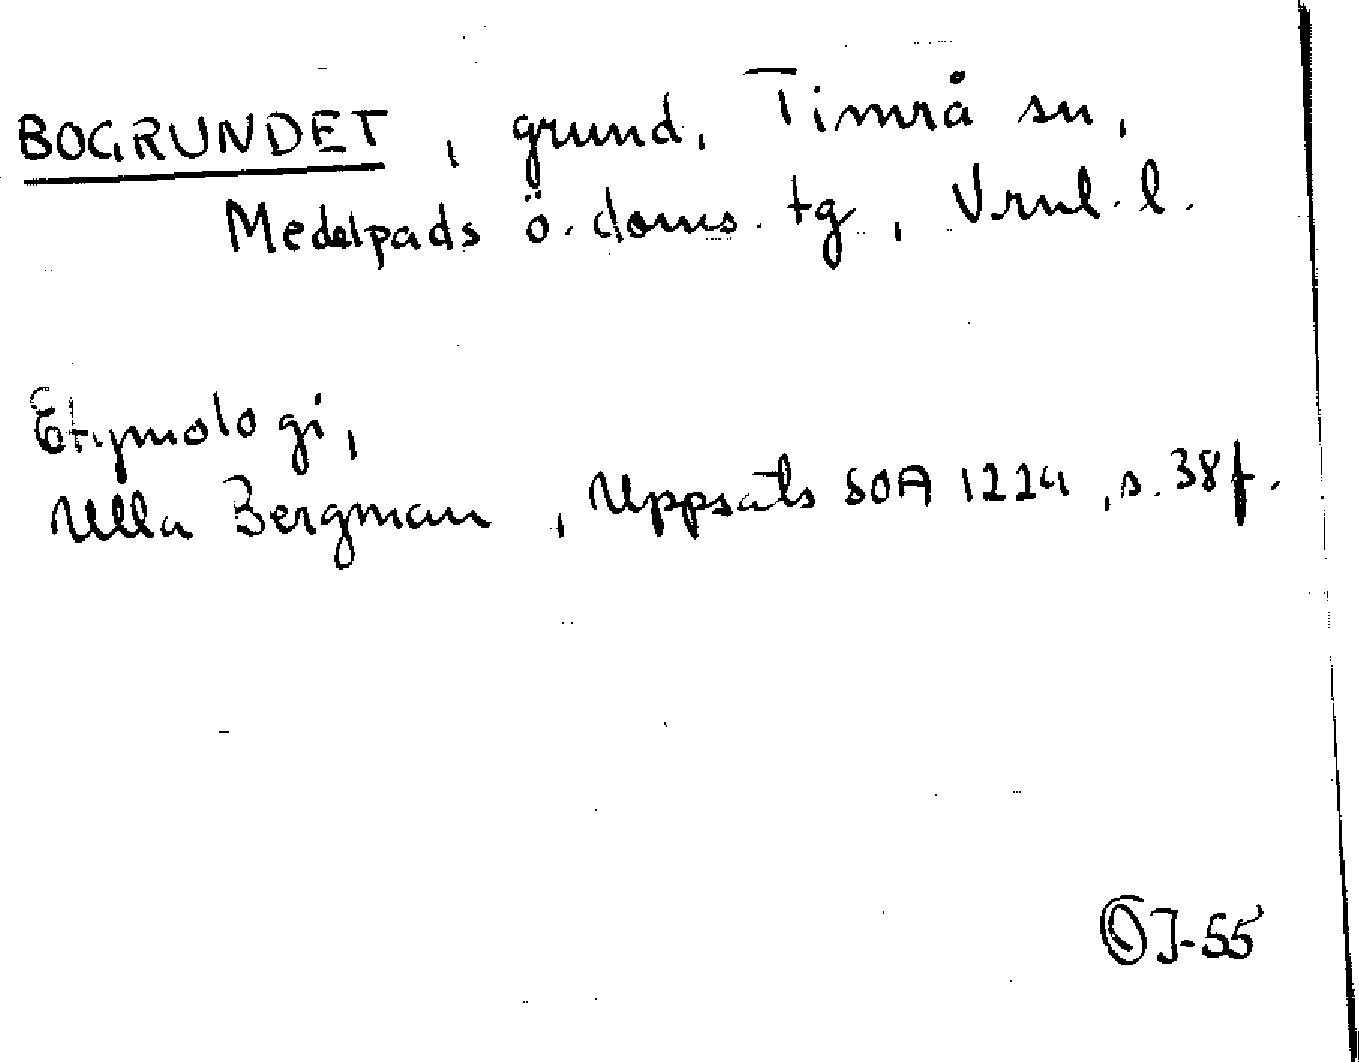 BOGRUNDET, grund, Timrå sn,
Medelpads ö. doms. tg, Vrnl. l.
Etymologi,
Ulla Bergman, Uppsats SOA 1224, s. 38f.
J-55